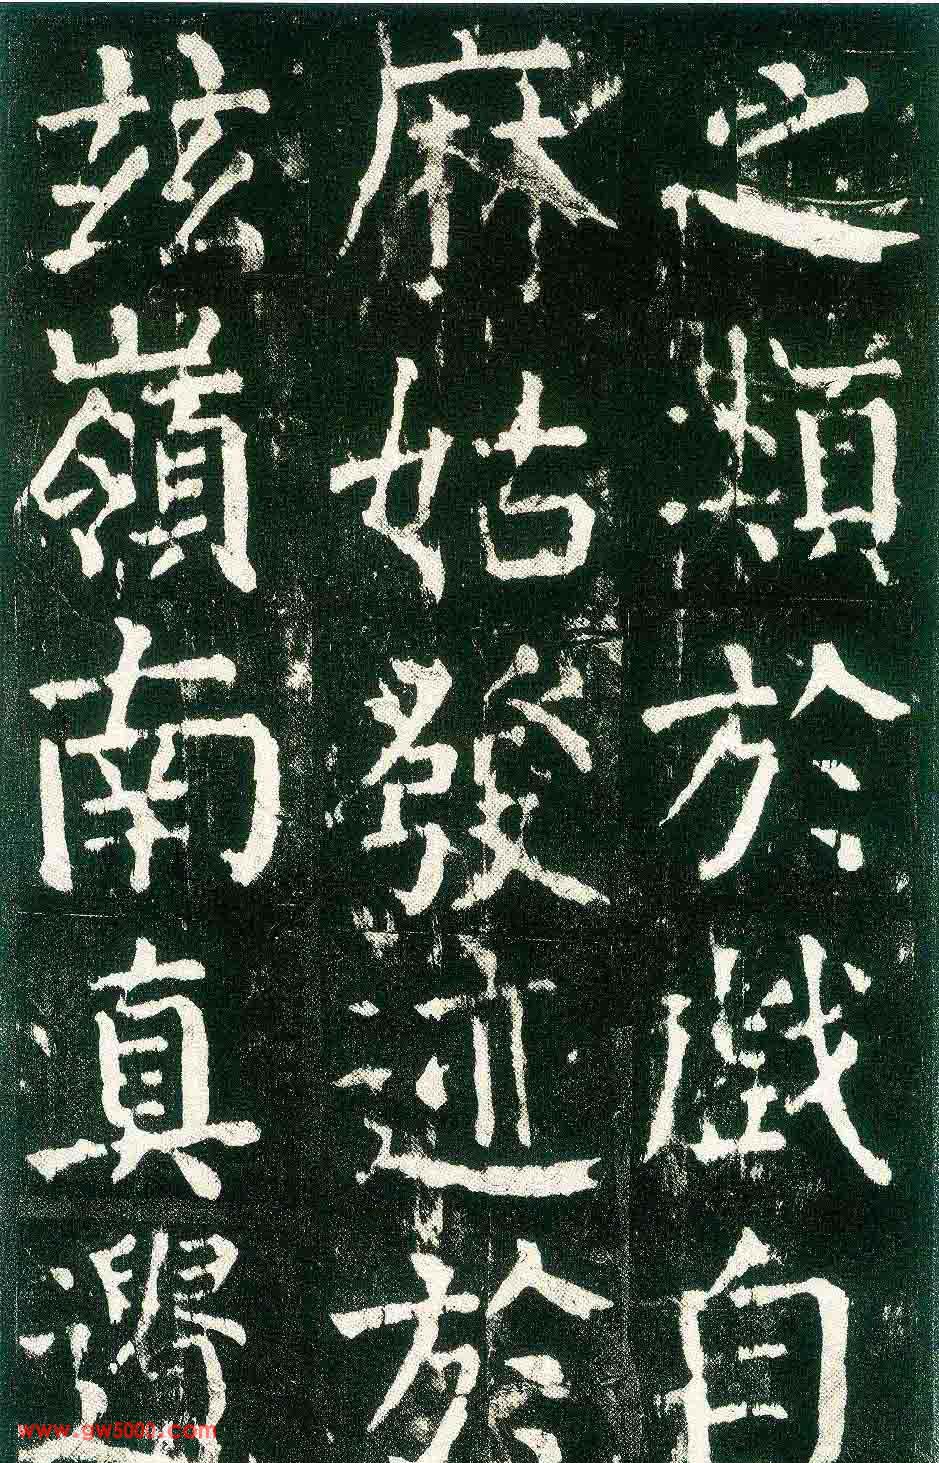 之類於戲自
麻姑發迹於
茲嶺南真遺
www.gw5001.com